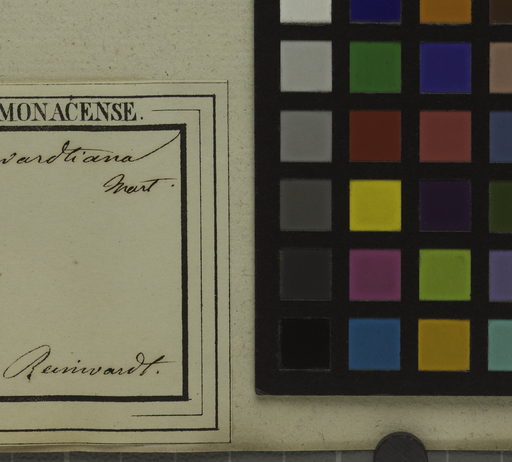 MONACENSE.
wardtiana
Mart.
Reinwardt.